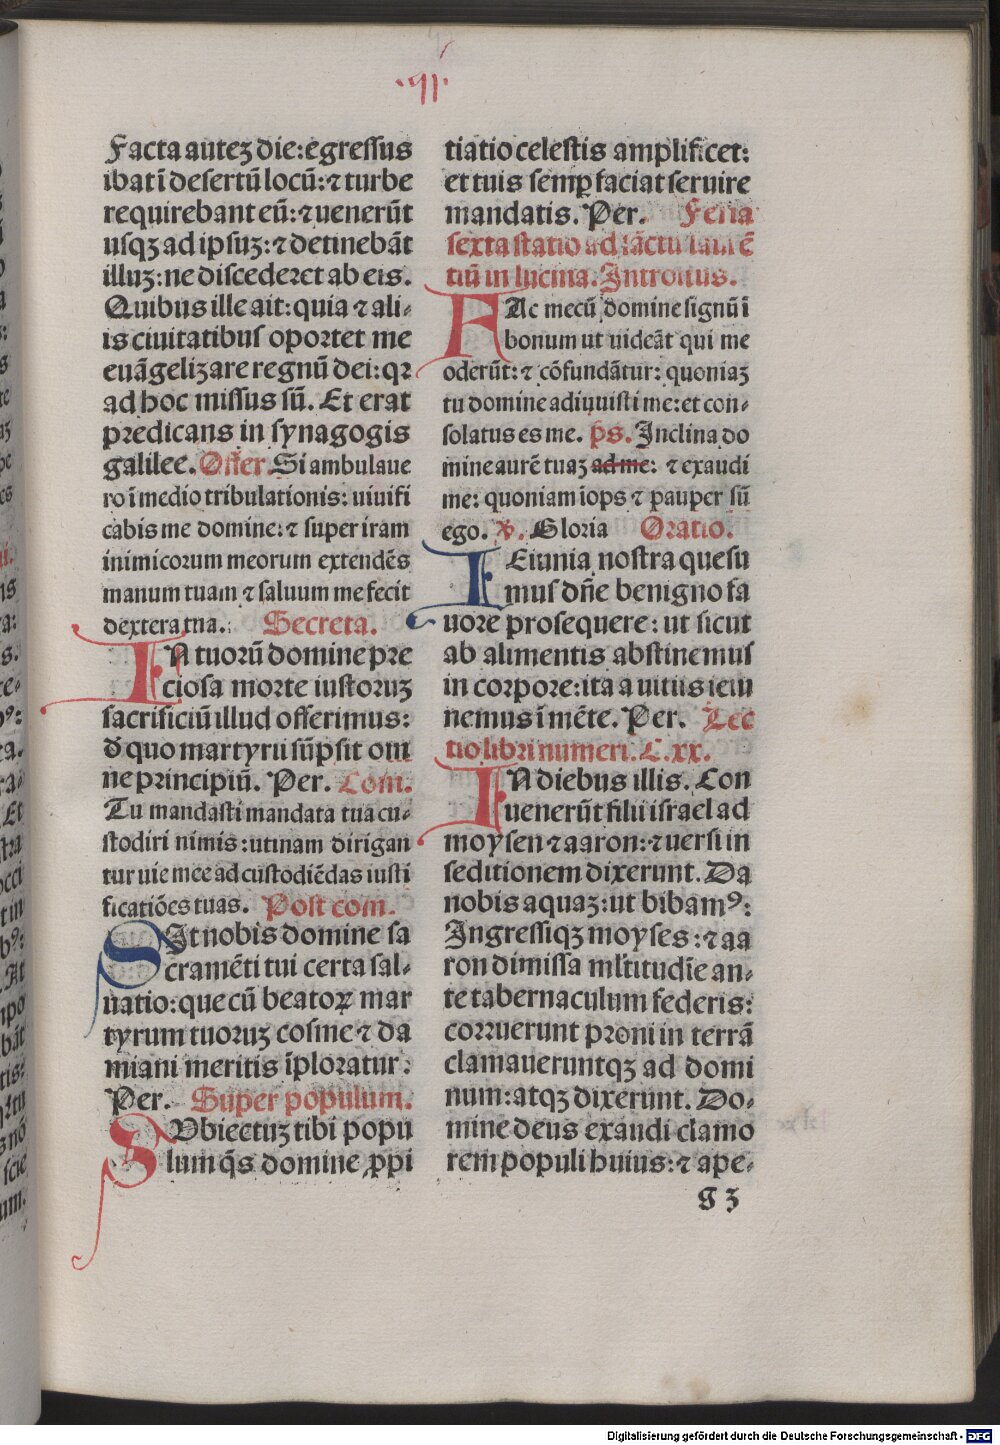 .qı.
Facta autez die: egressus
ibat ī desertū locū: ⁊ turbe
requirebant eū: ⁊ uenerūt
usqȝ ad ipsuȝ: ⁊ detinebāt
illuȝ: ne discederet ab eis.
Quibus ille ait: quia ⁊ ali-
is ciuitatibus oportet me
euāgelizare regnū dei: qꝛ
ad hoc missus sū. Et erat
predicans in synagogis
galilee. Offer. Si ambulaue
ro ī medio tribulationis: uiuifi
cabis me domine: ⁊ super iram
inimicorum meorum extendēs
manum tuam ⁊ saluum me fecit
dextera tua. Secreta.
IN tuorū domine pre
ciosa morte iustoruȝ
sacrificiū illud offerimus:
d̄ quo martyriū sūpsit om
ne principiū. Per. Com.
Tu mandasti mandata tua cu-
stodiri nimis: utinam dirigan
tur uie mee ad custodiēdas iusti
ficatiōes tuas. Post com.
SIt nobis domine sa
cramēti tui certa sal-
uatio: que cū beatoꝝ mar
tyrum tuoruȝ cosme ⁊ da
miani meritis īploratur:
Per. Super populum.
SUbiectuȝ tibi popu
lum q̄s domine ꝓpi
tiatio celestis amplificet:
et tuis semꝑ faciat seruire
mandatis. Per. Feria
sexta statio ad sāctū laurē
tiū in lucina. Introitus.
FAc mecū domine signū ī
bonum ut uideāt qui me
oderūt: ⁊ cōfundātur: quoniaȝ
tu domine adiuuisti me: et con-
solatus es me. ps. Inclina do
mine aurē tuaȝ ad me: ⁊ exaudi
me: quoniam īops ⁊ pauper sū
ego. v. Gloria Oratio.
IEiunia nostra quesu
mus dn̄e benigno fa
uore prosequere: ut sicut
ab alimentis abstinemus
in corpore: ita a uitiis ieiu
nemus ī mēte. Per. Lec
tio libri numeri. C. xx.
IN diebus illis. Con
uenerūt filii israel ad
moysen ⁊ aaron: ⁊ uersi in
seditionem dixerunt. Da
nobis aquaȝ: ut bibamꝰ:
Ingressiqȝ moyses: ⁊ aa
ron dimissa ml̄titudīe an-
te tabernaculum federis:
corruerunt proni in terrā
clamaueruntqȝ ad domi
num: atqȝ dixerunt. Do-
mine deus exaudi clamo
rem populi huius: ⁊ ape-
g 3
Digitalisierung gefördert durch die Deutsche Forschungsgemeinschaft - DFG